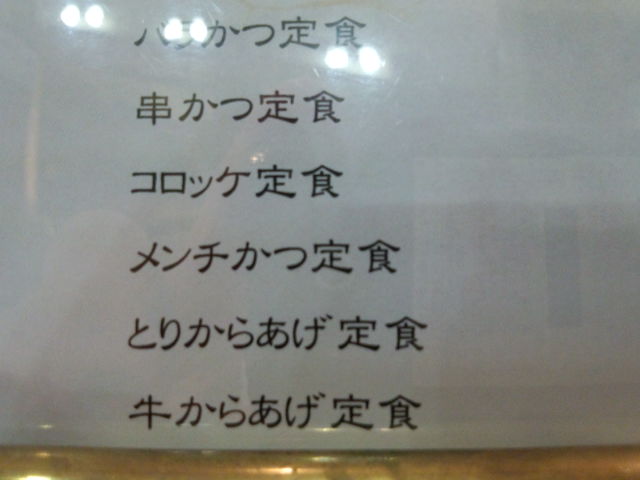 バラかつ定食
串かつ定食
コロッケ定食
メンチかつ定食
とりからあげ定食
牛からあげ定食